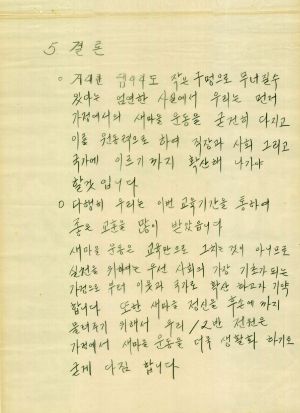 5 결론
○ 거대한 댐도 작은 구멍으로 무너질수
있다는 엄연한 사실에서 우리는 먼저
가정에서의 새마을 운동을 굳건히 다지고
이를 원동력으로 하여 직장과 사회 그리고
국가에 이르기까지 확산해 나가야
할것 입니다
○ 다행히 우리는 이번 교육기간을 통하여
좋은 교훈을 많이 받았습니다
새마을 운동은 교육만으로 그치는것이 아니므로
실천을 위해서는 우선 사회의 가장 기초가 되는
가정으로 부터 이웃과 국가로 확산 하고자 기약
합니다 또한 새마을 정신을 후손에 까지
물려주기 위해서 우리 12반 전원은
가정에서 새마을 운동을 더욱 생활화 하기로
굳게 다짐 합니다